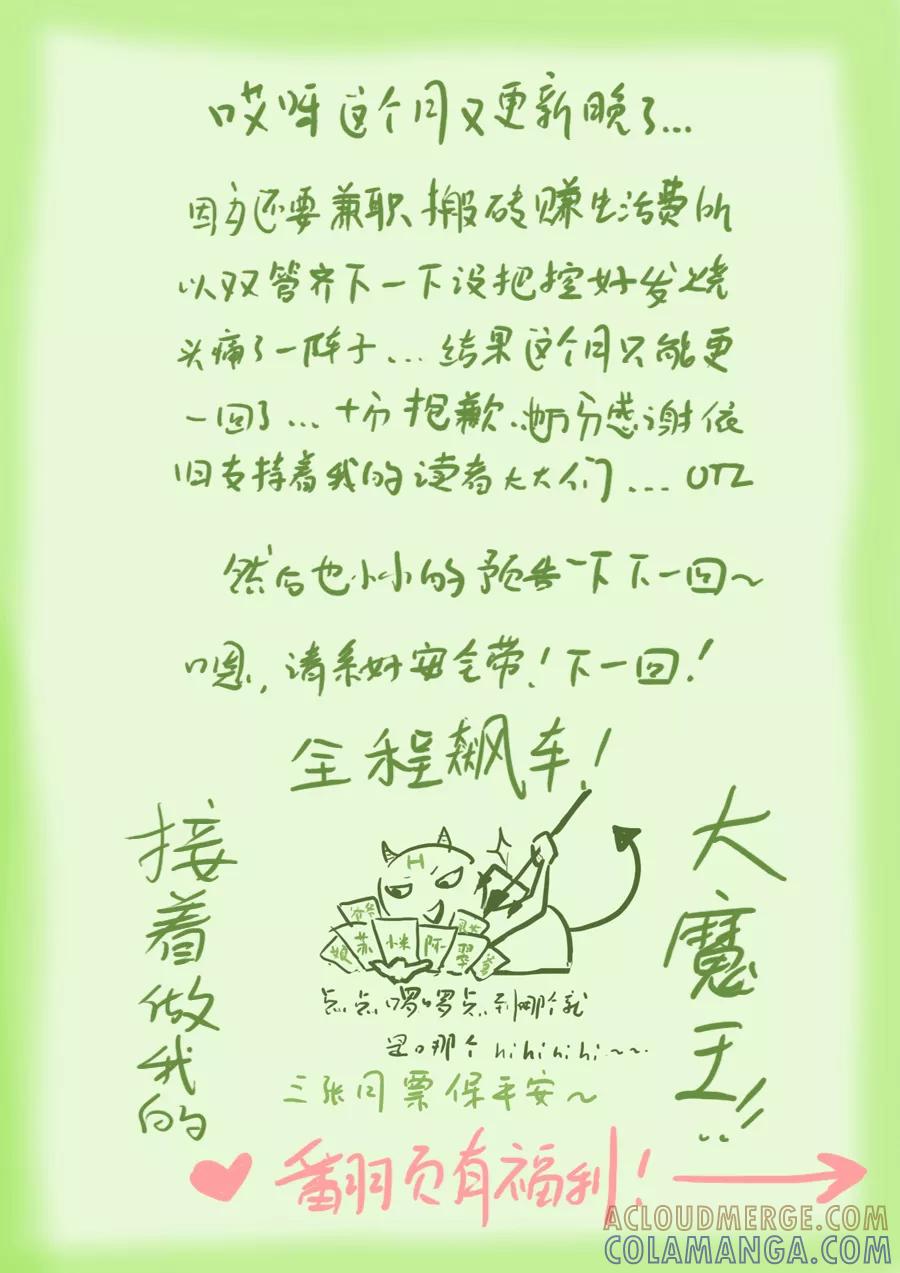 哎呀这个月又更新晚了...
因为还要兼职搬砖赚生活费所
以双管齐下一下没把控好发烧
头痛了一阵子...结果这个月只能更
一回了...十分抱歉..十万分感谢依
旧支持着我的读者大大们...OTZ
然后也小小的预告一下下一回~
嗯,请系好安全带!下一回!
全程飙车!
接着做我的
大魔王!!
H
苏
小米
阿
翠
点点啰啰点到哪个就
是哪个hihihihi~~..
三张月票保平安~
翻页有福利!
ACLOUDMERGE.COM
COLAMANGA.COM